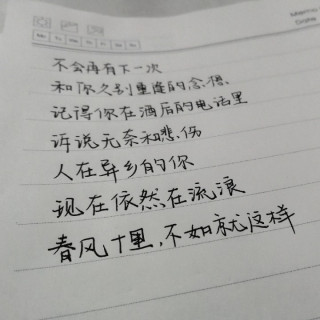 不会再有下一次
和你久别重逢的念想
记得你在酒后的电话里
诉说无奈和悲伤
人在异乡的你
现在依然在流浪
春风十里,不如就这样